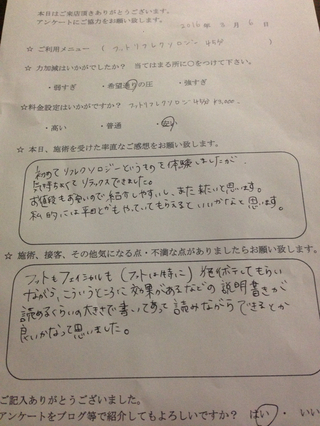 本日はご来店頂きありがとうございます。
アンケートにご協力をお願い致します。
2016年 3月 6日
☆ ご利用メニュー ( フットリフレクソロジー 45分 )
☆ 力加減はいかがでしたか? 当てはまる所に○をつけて下さい。
・弱すぎ ・希望通りの圧 ・強すぎ
☆料金設定はいかがですか? フットリフレクソロジー 45分 ¥3,000
・高い ・普通 ・安い
☆ 本日、施術を受けた率直なご感想をお願い致します。
初めてリフレクソロジーというものを体験しましたが、
気持ちよくてリラックスできました。
お値段もお安いので紹介しやすいし、また来たいと思います。
私的には平日とかもやっていてもらえるといいかなと思います。
☆ 施術、接客、その他気になる点・不満な点がありましたらお願い致します。
フットもフェイシャルも(フットは特に)施術してもらい
ながら、こういうところに効果があるなどの説明書きが
読めるくらいの大きさで書いてあって読みながらできるとか
良いかなって思いました。
ご記入ありがとうございました。
アンケートをブログ等で紹介してもよろしいですか? はい ・ いい